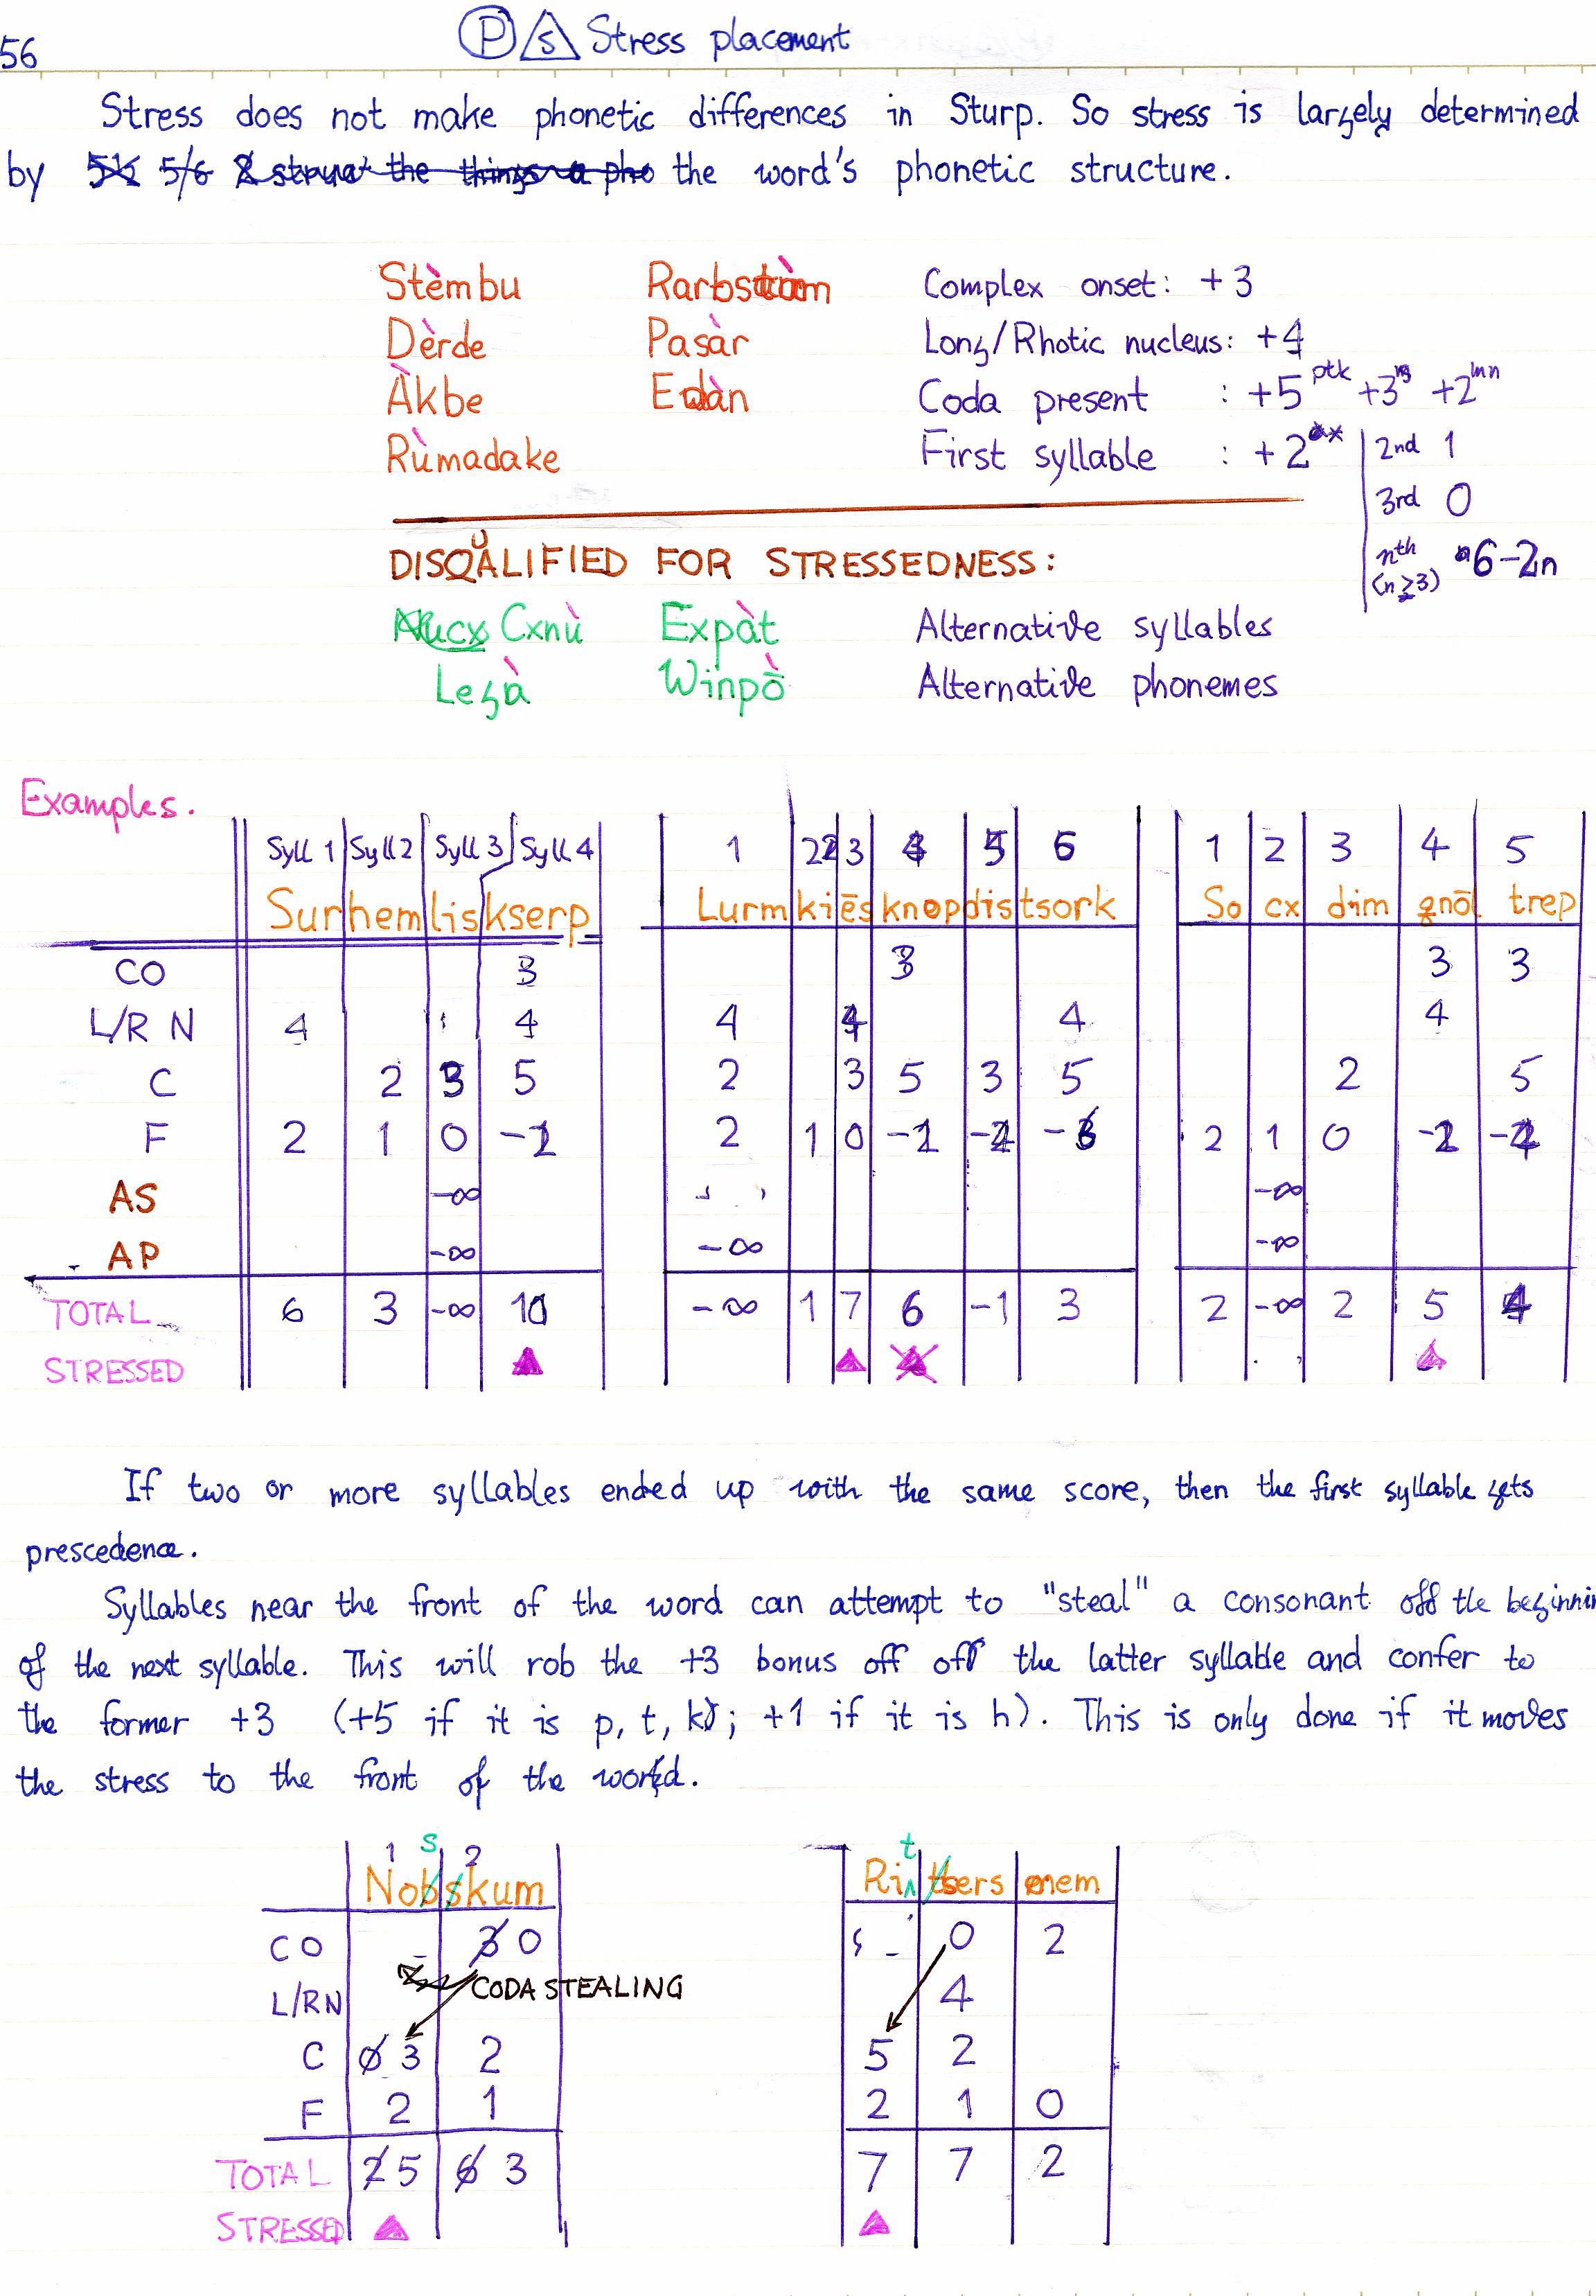 56
P S Stress placement
Stress does not make phonetic differences in Sturp. So stress is largely determined
by the word's phonetic structure.
Stèmbu Complex onset: +3
Dèrde Pasàr Long/Rhotic nucleus: +4
Àkbe Edàn Coda present : +5 ptk +3 +2 mn
Rùmadake First syllable : +2 2nd 1
3rd 0
nth (n≥3) 6-2n
DISQUALIFIED FOR STRESSEDNESS:
Cxnù Expàt Alternative syllables
Legà Winpò Alternative phonemes
Examples.
Syll 1 Syll 2 Syll 3 Syll 4 1 2 3 4 5 6 1 2 3 4 5
Sur hem lis kserp Lurm ki ēs knop dis tsork So cx dim gnōl trep
CO 3 3 3 3
L/R N 4 4 4 4 4 4
C 2 3 5 2 3 5 3 5 2 5
F 2 1 0 2 1 0 2 1 0
AS -∞ -∞
AP -∞ -∞ -∞
TOTAL 6 3 -∞ 10 -∞ 1 7 6 -1 3 2 -∞ 2 5 4
STRESSED
If two or more syllables ended up with the same score, then the first syllable gets
prescedence.
Syllables near the front of the word can attempt to "steal" a consonant off the beginnin
of the next syllable. This will rob the +3 bonus off off the latter syllable and confer to
the former +3 (+5 if it is p, t, k); +1 if it is h). This is only done if it moves
the stress to the front of the word.
1 s 2 t
Nobskum Ri tsers enem
CO 3 0 0 2
CODA STEALING
L/RN 4
C 0 3 2 5 2
F 2 1 2 1 0
TOTAL 2 5 6 3 7 7 2
STRESSED